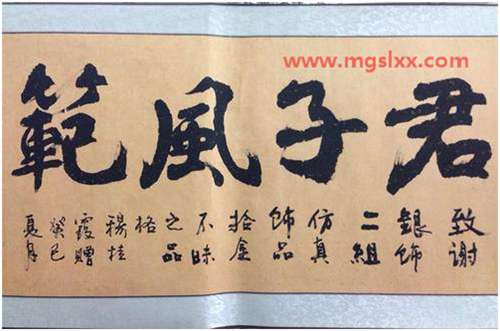 www.mgslxx.com
君子風範
致谢
銀飾
二組
仿真
飾品
拾金
不昧
之品
格
楊桂
霞贈
癸巳
夏月